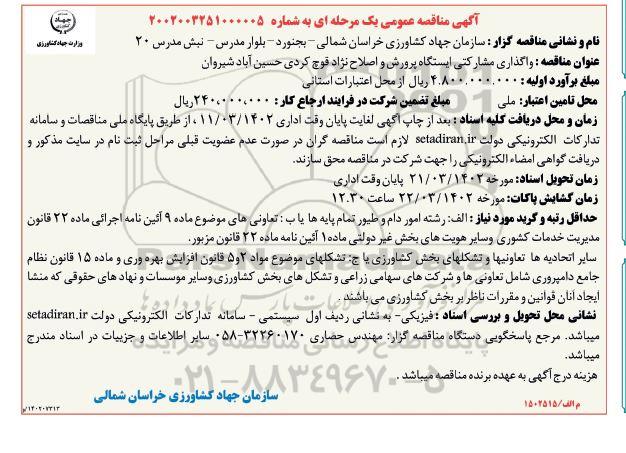 آگهی مناقصه عمومی یک مرحله ای به شماره ۲۰۰۲۰۰۳۲۵۱۰۰۰۰۰۵
جهاد
وزارت جهاد کشاورزی
نام و نشانی مناقصه گزار : سازمان جهاد کشاورزی خراسان شمالی – بجنورد – بلوار مدرس – نبش مدرس ۲۰
عنوان مناقصه : واگذاری مشارکتی ایستگاه پرورش و اصلاح نژاد قوچ کردی حسین آباد شیروان
مبلغ برآورد اولیه : ۴.۸۰۰.۰۰۰.۰۰۰ ریال از محل اعتبارات استانی
محل تامین اعتبار: ملی مبلغ تضمین شرکت در فرایند ارجاع کار : ۲۴۰،۰۰۰،۰۰۰ریال
زمان و محل دریافت کلیه اسناد : بعد از چاپ آگهی لغایت پایان وقت اداری ۱۱/۰۳/۱۴۰۲ ، از طریق پایگاه ملی مناقصات و سامانه
تدارکات الکترونیکی دولت setadiran.ir لازم است مناقصه گران در صورت عدم عضویت قبلی مراحل ثبت نام در سایت مذکور و
دریافت گواهی امضاء الکترونیکی را جهت شرکت در مناقصه محق سازند.
زمان تحویل اسناد: مورخه ۲۱/۰۳/۱۴۰۲ پایان وقت اداری
زمان گشایش پاکات: مورخه ۲۲/۰۳/۱۴۰۲ ساعت ۱۲.۳۰
حداقل رتبه و گرید مورد نیاز : الف: رشته امور دام و طیور تمام پایه ها یا ب : تعاونی های موضوع ماده ۹ آئین نامه اجرائی ماده ۲۲ قانون
مدیریت خدمات کشوری وسایر هویت های بخش غیر دولتی ماده۱ آئین نامه ماده ۲۲ قانون مزبور.
سایر اتحادیه ها تعاونیها و تشکلهای بخش کشاورزی یا ج: تشکلهای موضوع مواد ۲و۵ قانون افزایش بهره وری و ماده ۱۵ قانون نظام
جامع دامپروری شامل تعاونی ها و شرکت های سهامی زراعی و تشکل های بخش کشاورزی وسایر موسسات و نهاد های حقوقی که منشا
ایجاد آنان قوانین و مقررات ناظر بر بخش کشاورزی می باشند .
نشانی محل تحویل و بررسی اسناد : فیزیکی- به نشانی ردیف اول سیستمی - سامانه تدارکات الکترونیکی دولت setadiran.ir
میباشد. مرجع پاسخگویی دستگاه مناقصه گزار: مهندس حصاری ۳۲۲۶۰۱۷۰-۰۵۸ سایر اطلاعات و جزییات در اسناد مندرج
میباشد.
هزینه درج آگهی به عهده برنده مناقصه میباشد .
سازمان جهاد کشاورزی خراسان شمالی
م الف/۱۵۰۲۵۱۵
۱۴۰۲۰۷۳۱۳/و
پایگاه اطلاع رسانی مناقصه و مزایده
۰۲۱-۸۸۳۴۹۶۷۰-۵